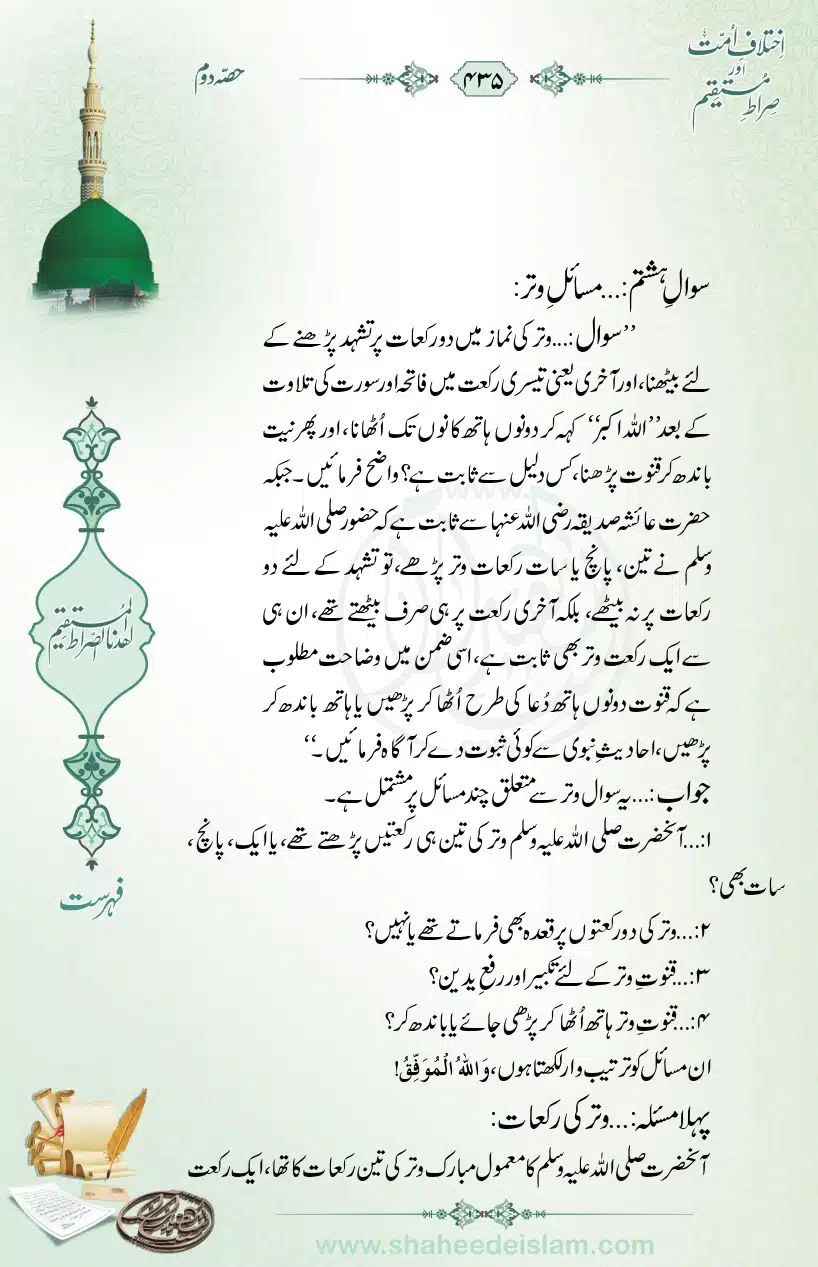 اِختلافِ اُمّت
اور
صِراطِ مُستقیم
۴۳۵
حصّہ دوم
سوالِ ہشتم:...مسائلِ وتر:
’’سوال:...وتر کی نماز میں دو رکعات پر تشہد پڑھنے کے
لئے بیٹھنا، اور آخری یعنی تیسری رکعت میں فاتحہ اور سورت کی تلاوت
کے بعد ’’اللہ اکبر‘‘ کہہ کر دونوں ہاتھ کانوں تک اُٹھانا، اور پھر نیت
باندھ کر قنوت پڑھنا، کس دلیل سے ثابت ہے؟ واضح فرمائیں۔ جبکہ
حضرت عائشہ صدیقہ رضی اللہ عنہا سے ثابت ہے کہ حضور صلی اللہ علیہ
وسلم نے تین، پانچ یا سات رکعات وتر پڑھے، تو تشہد کے لئے دو
رکعات پر نہ بیٹھے، بلکہ آخری رکعت پر ہی صرف بیٹھتے تھے، ان ہی
سے ایک رکعت وتر بھی ثابت ہے، اسی ضمن میں وضاحت مطلوب
ہے کہ قنوت دونوں ہاتھ دُعا کی طرح اُٹھا کر پڑھیں یا ہاتھ باندھ کر
پڑھیں، احادیثِ نبوی سے کوئی ثبوت دے کر آگاہ فرمائیں۔‘‘
جواب:...یہ سوال وتر سے متعلق چند مسائل پر مشتمل ہے۔
۱:...آنحضرت صلی اللہ علیہ وسلم وتر کی تین ہی رکعتیں پڑھتے تھے، یا ایک، پانچ،
سات بھی؟
۲:...وتر کی دو رکعتوں پر قعدہ بھی فرماتے تھے یا نہیں؟
۳:...قنوتِ وتر کے لئے تکبیر اور رفعِ یدین؟
۴:...قنوتِ وتر ہاتھ اُٹھا کر پڑھی جائے یا باندھ کر؟
ان مسائل کو ترتیب وار لکھتا ہوں، وَاللهُ الْمُوَفِّقُ!
پہلا مسئلہ:...وتر کی رکعات:
آنحضرت صلی اللہ علیہ وسلم کا معمول مبارک وتر کی تین رکعات کا تھا، ایک رکعت
اهدنا الصراط المستقیم
فہرست
www.shaheedeislam.com